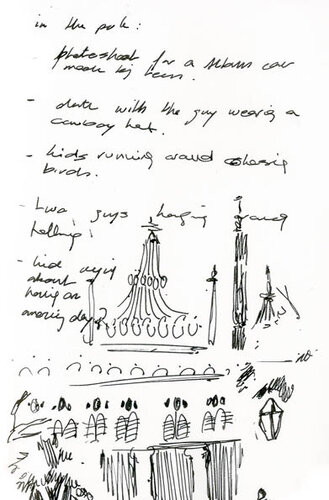 in the park:
photoshoot for a album cover
made by teens.
- date with the guy wearing a
cowboy hat.
- kids running around chasing
birds.
- two guys hanging around
talking!
- kid crying
about
having an
amazing day?